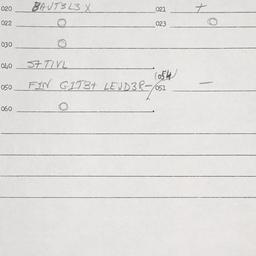 020 BAUT3L3X 021 +
022 O 023 O
030 O
040 S7TIVL
050 FIN GIT37 LEVD3R-/051 (054) —
060 O